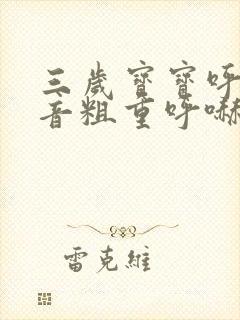 三歲寶寶呼
音粗重呼嚇
雷克維